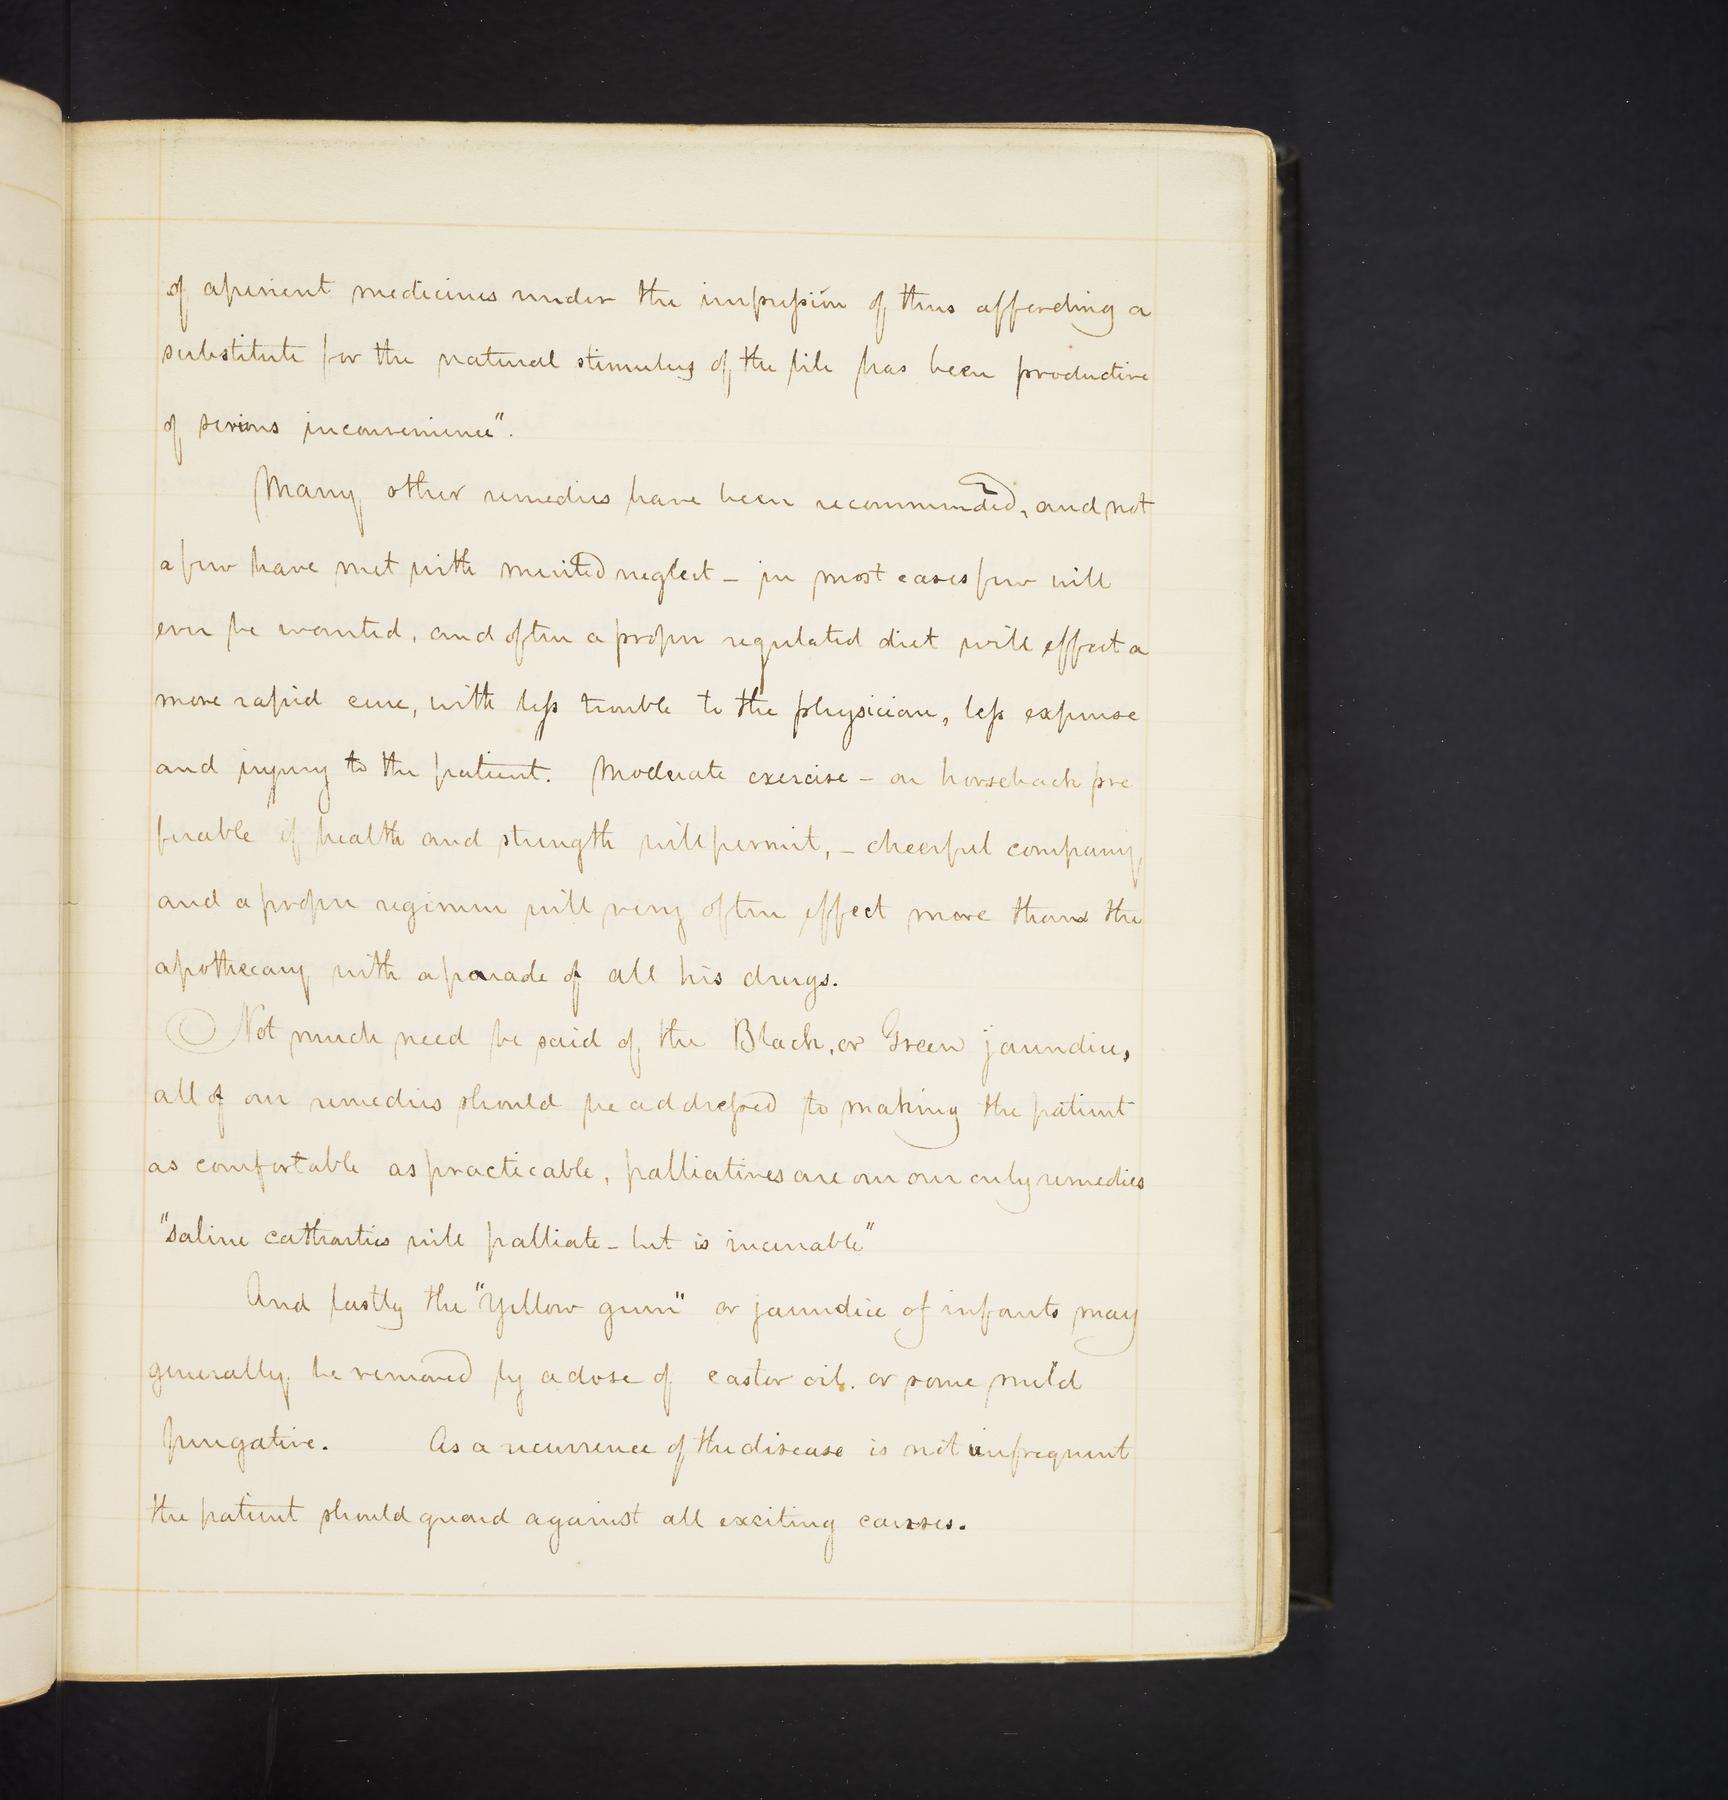 of aperient medicines under the impression of thus affording a
substitute for the natural stimulus of the bile has been productive
of serious inconvenience".
Many other remedies have been recommended, and not
a few have met with merited neglect – in most cases few will
ever be wanted, and often a proper regulated diet will effect a
more rapid cure, with less trouble to the physician, less expense
and injury to the patient. Moderate exercise – on horseback pre
ferable if health and strength will permit, – cheerful company,
and a proper regimen will very often effect more than the
apothecary with a parade of all his drugs.
Not much need be said of the Black, or Green jaundice,
all of our remedies should be addressed to making the patient
as comfortable as practicable, palliatives are our our only remedies
"saline cathartics will palliate – but is incurable"
And lastly the "Yellow gum" or jaundice of infants may
generally be removed by a dose of castor oil. or some mild
purgative. As a recurrence of the disease is not unfrequent
the patient should guard against all exciting causes.